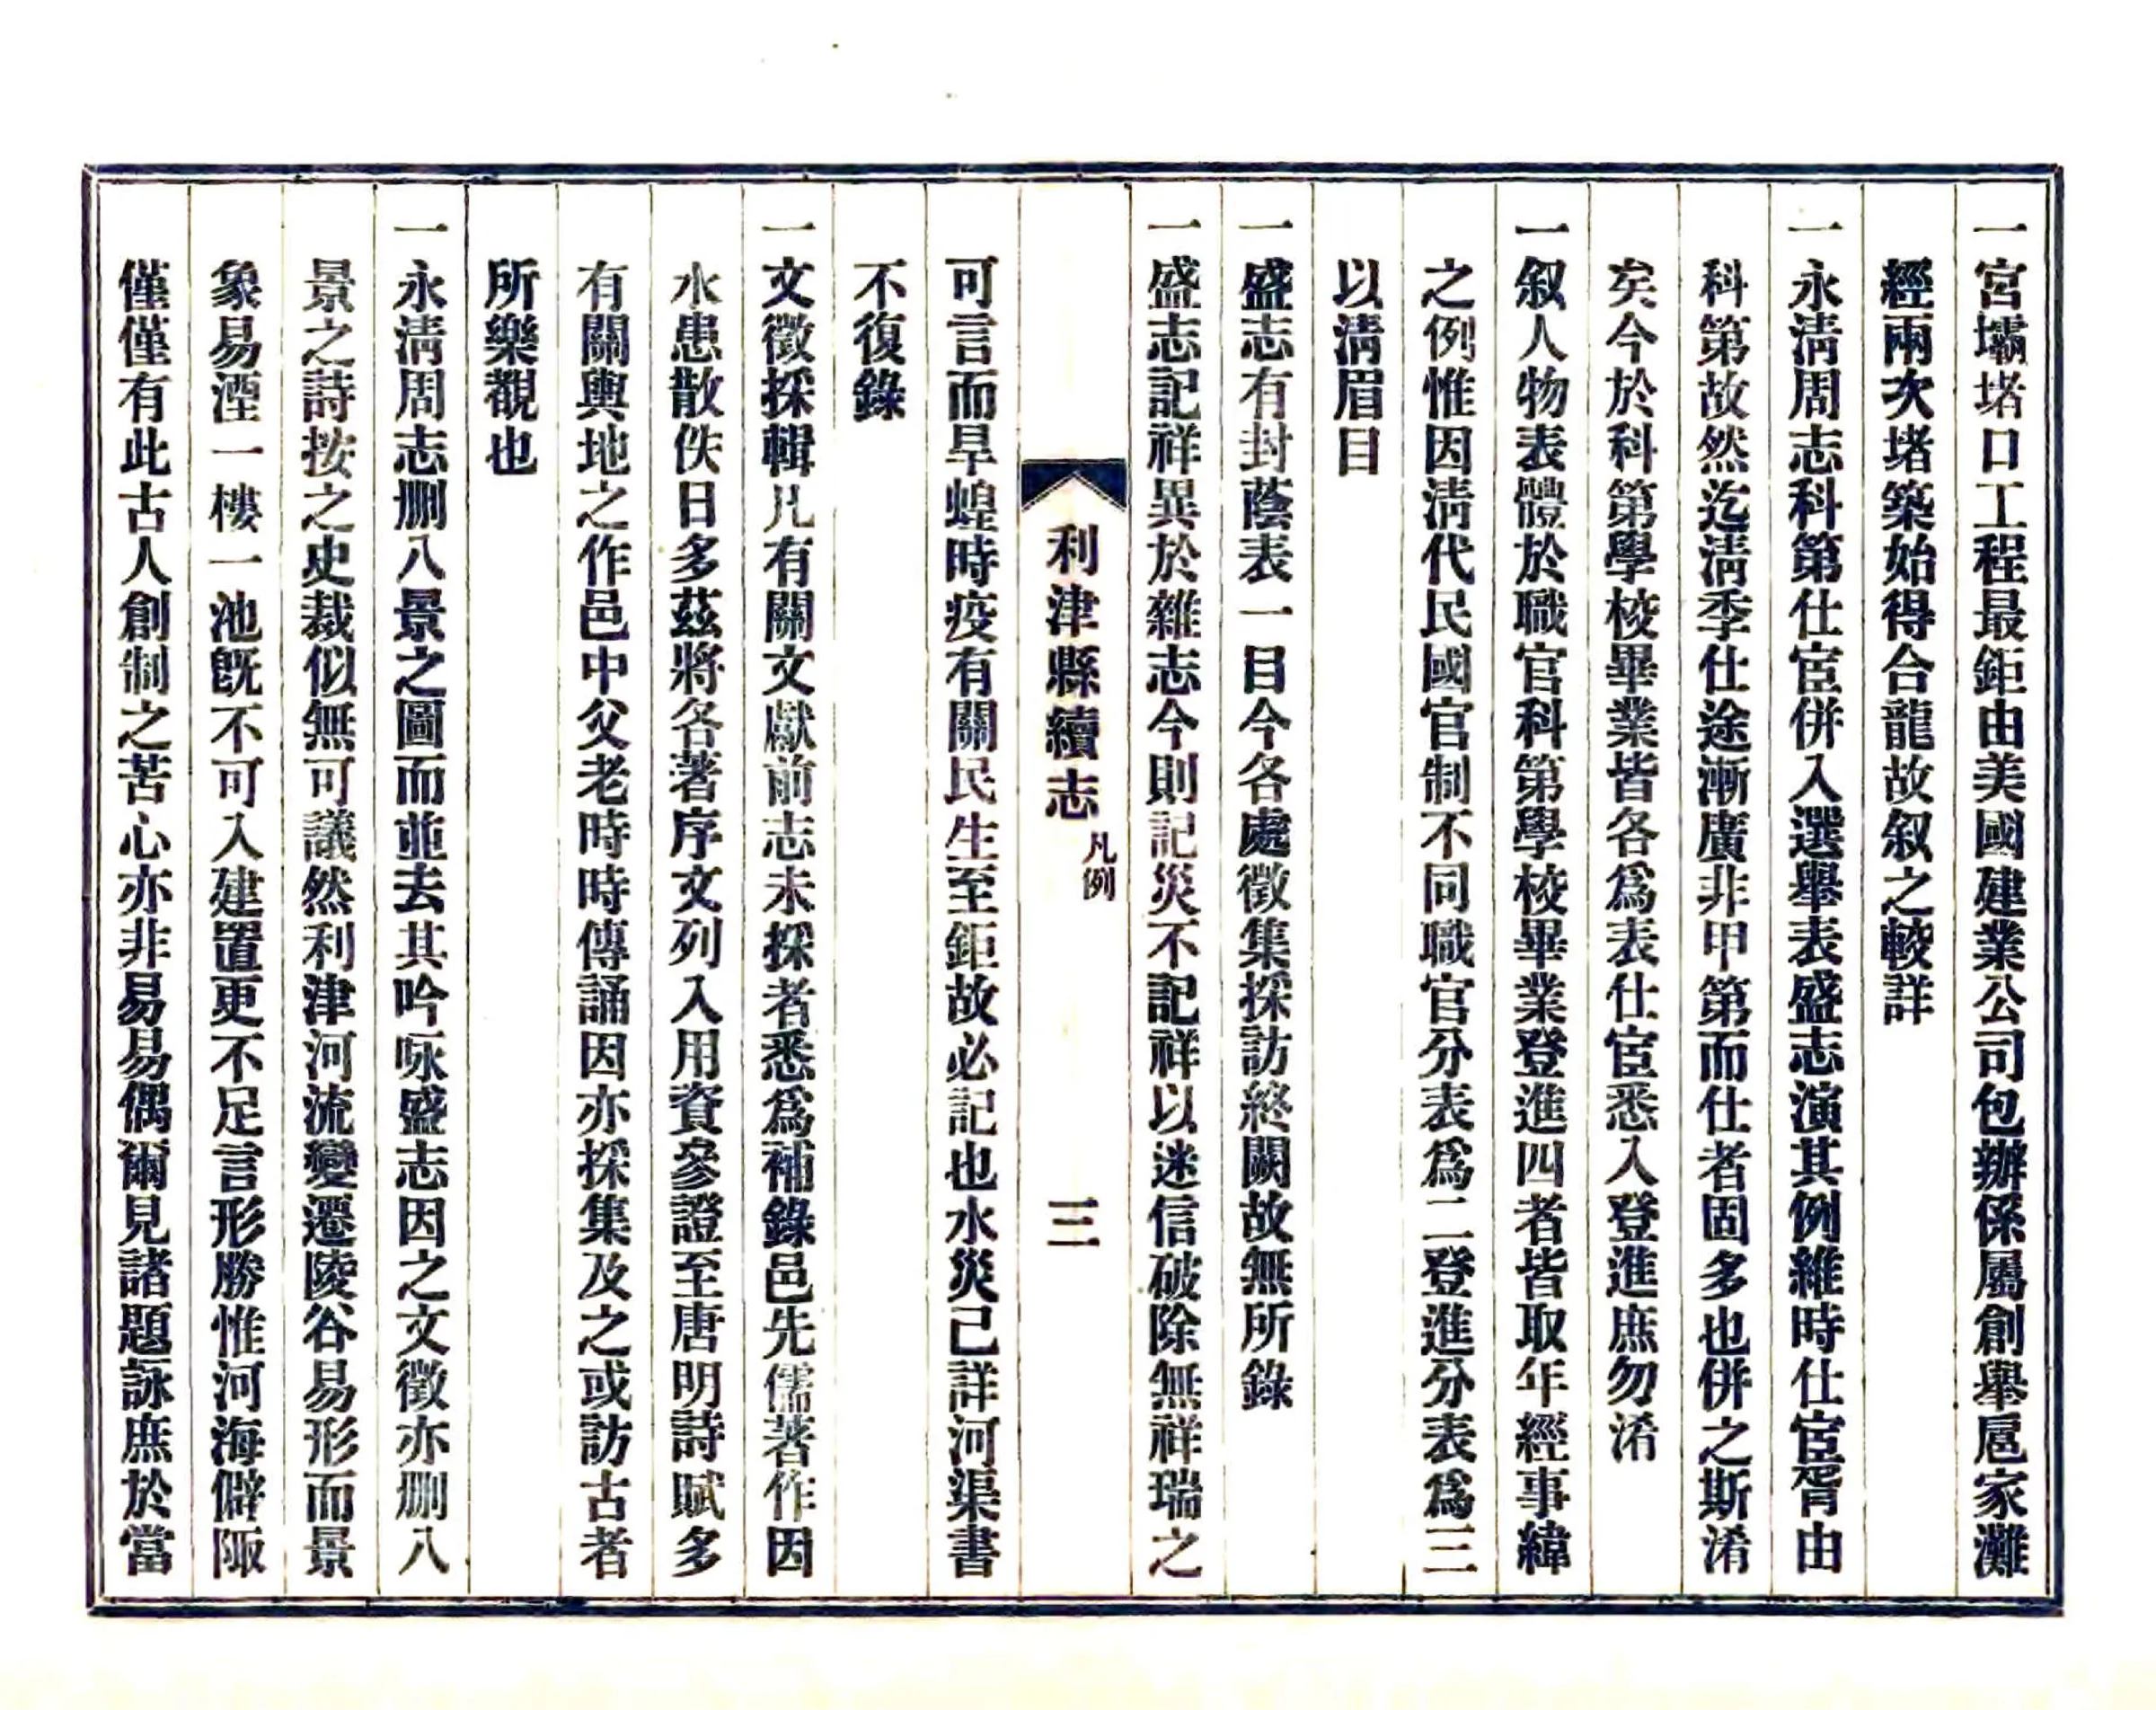 一宮壩堵口工程最鉅由美國建業公司包辦係屬創舉扈家灘
經兩次堵築始得合龍故叙之較詳
一永淸周志科第仕宦併入選舉表盛志演其例維時仕宦胥由
科第故然迄淸季仕途漸廣非甲第而仕者固多也併之斯淆
矣今於科第學校畢業皆各爲表仕宦悉入登進庶勿淆
一叙人物表體於職官科第學校畢業登進四者皆取年經事緯
之例惟因淸代民國官制不同職官分表爲二登進分表爲三
以淸眉目
一盛志有封蔭表一目今各處徵集採訪終闕故無所錄
一盛志記祥異於雜志今則記災不記祥以迷信破除無祥瑞之
利津縣續志 凡例 三
可言而旱蝗時疫有關民生至鉅故必記也水災己詳河渠書
不復錄
一文徵採輯凡有關文獻前志未採者悉爲補錄邑先儒著作因
水患散佚日多茲將各著序文列入用資參證至唐明詩賦多
有關輿地之作邑中父老時時傳誦因亦採集及之或訪古者
所樂覩也
一永淸周志删八景之圖而並去其吟咏盛志因之文徵亦删八
景之詩按之史裁似無可議然利津河流變遷陵谷易形而景
象易湮一樓一池旣不可入建置更不足言形勝惟河海僻陬
僅僅有此古人創制之苦心亦非易易偶爾見諸題詠庶於當